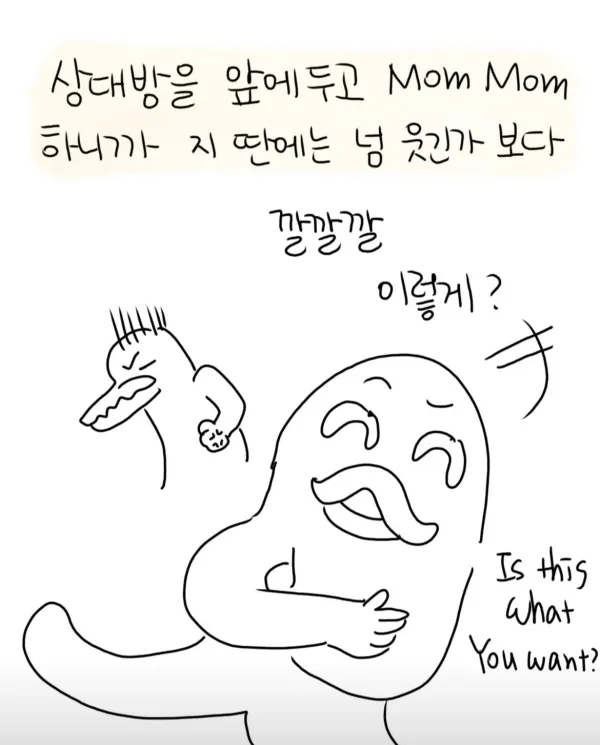 상대방을 앞에두고 Mom Mom
하니까 지 딴에는 넘 웃긴가 보다
깔깔깔
이렇게?
Is this
what
You want?